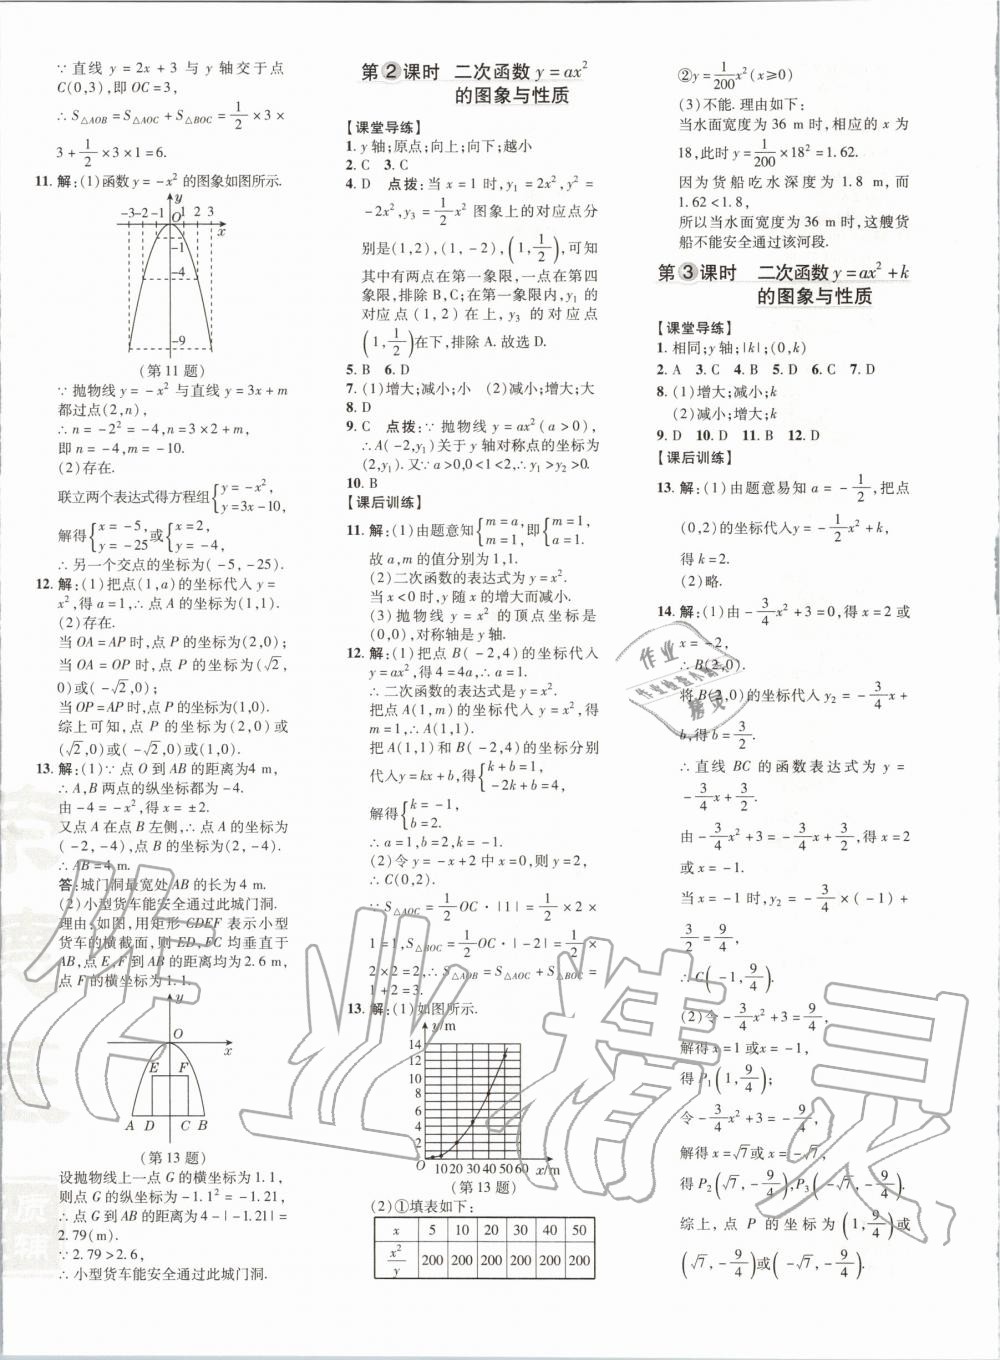 ∵直线 y = 2x + 3 与 y 轴交于点
C(0,3),即 OC = 3,
∴ S△AOB = S△AOC + S△BOC = 1/2 × 3 ×
3 + 1/2 × 3 × 1 = 6.
11. 解:(1)函数 y = -x² 的图象如图所示.
y
-3 -2 -1 O 1 2 3 x
-1
-4
-9
(第 11 题)
∵ 抛物线 y = -x² 与直线 y = 3x + m
都过点(2,n),
∴ n = -2² = -4,n = 3×2 + m,
即 n = -4,m = -10.
(2)存在.
联立两个表达式得方程组{y = -x², y = 3x - 10,
解得{x = -5, y = -25 或{x = 2, y = -4,
∴ 另一个交点的坐标为(-5,-25).
12. 解:(1)把点(1,a)的坐标代入 y =
x²,得 a = 1,∴ 点 A 的坐标为(1,1).
(2)存在.
当 OA = AP 时,点 P 的坐标为(2,0);
当 OA = OP 时,点 P 的坐标为(√2,
0)或(-√2,0);
当 OP = AP 时,点 P 的坐标为(1,0).
综上可知,点 P 的坐标为(2,0)或
(√2,0)或(-√2,0)或(1,0).
13. 解:(1)∵ 点 O 到 AB 的距离为4 m,
∴ A,B 两点的纵坐标都为 -4.
由 -4 = -x²,得 x = ±2.
又点 A 在点 B 左侧,∴ 点 A 的坐标为
(-2,-4),点 B 的坐标为(2,-4).
∴ AB = 4 m.
答:城门洞最宽处 AB 的长为 4 m.
(2)小型货车能安全通过此城门洞.
理由:如图,用矩形 CDEF 表示小型
货车的横截面,则 ED,FC 均垂直于
AB,点 E 与点 F 之间的距离为 2.6 m,
点 F 的横坐标为 1.1.
y
O x
E F
A D C B
(第 13 题)
设抛物线上一点 G 的横坐标为 1.1,
则点 G 的纵坐标为 -1.1² = -1.21,
∴ 点 G 到 AB 的距离为 |-4| - |-1.21| =
2.79(m).
∵ 2.79 > 2.6,
∴ 小型货车能安全通过此城门洞.
第2课时 二次函数 y = ax²
的图象与性质
【课堂导练】
1. y 轴;原点;向上;向下;越小
2. C 3. C
4. D 点拨:当 x = 1 时,y₁ = 2x²,y² =
-2x²,y₃ = 1/2 x² 图象上的对应点分
别是(1,2),(1,-2),(1,1/2),可知
其中有两点在第一象限,一点在第四
象限,排除 B,C;在第一象限内,y₁ 的
对应点(1,2)在上,y₃ 的对应点
(1,1/2)在下,排除 A. 故选 D.
5. B 6. D
7. (1)增大;减小;小 (2)减小;增大;大
8. D
9. C 点拨:∵ 抛物线 y = ax²(a > 0),
∴ A(-2,y₁)关于 y 轴对称点的坐标为
(2,y₁). 又∵ a > 0,0 < 1 < 2,∴ y₁ > y₂ > 0.
10. B
【课后训练】
11. 解:(1)由题意知{m = a, m = 1,即{m = 1, a = 1.
故 a,m 的值分别为 1,1.
(2)二次函数的表达式为 y = x².
当 x < 0 时,y 随 x 的增大而减小.
(3)抛物线 y = x² 的顶点坐标是
(0,0),对称轴是 y 轴.
12. 解:(1)把点 B(-2,4)的坐标代入
y = ax²,得 4 = 4a,∴ a = 1.
∴ 二次函数的表达式是 y = x².
把点 A(1,m)的坐标代入 y = x²,得
m = 1,∴ A(1,1).
把 A(1,1)和 B(-2,4)的坐标分别
代入 y = kx + b,得{k + b = 1, -2k + b = 4,
解得{k = -1, b = 2.
∴ a = 1,b = 2,k = -1.
(2)令 y = -x + 2 中 x = 0,则 y = 2,
∴ C(0,2).
∵ S△AOC = 1/2 OC·|1| = 1/2 × 2 ×
1 = 1,S△BOC = 1/2 OC·|-2| = 1/2 ×
2 × 2 = 2,∴ S△AOB = S△AOC + S△BOC =
1 + 2 = 3.
13. 解:(1)如图所示.
y/m
14
12
10
8
6
4
2
O 10 20 30 40 50 60 x/m
(第 13 题)
(2)①填表如下:
x 5 10 20 30 40 50
x²/y 200 200 200 200 200 200
② y = 1/200 x²(x ≥ 0)
(3)不能. 理由如下:
当水面宽度为 36 m 时,相应的 x 为
18,此时 y = 1/200 × 18² = 1.62.
因为货船吃水深度为 1.8 m,而
1.62 < 1.8,
所以当水面宽度为 36 m 时,这艘货
船不能安全通过该河段.
第3课时 二次函数 y = ax² + k
的图象与性质
【课堂导练】
1. 相同;y 轴;|k|;(0,k)
2. A 3. C 4. B 5. D 6. C 7. D
8. (1)增大;减小;k
(2)减小;增大;k
9. D 10. D 11. B 12. D
【课后训练】
13. 解:(1)由题意易知 a = -1/2,把点
(0,2)的坐标代入 y = -1/2 x² + k,
得 k = 2.
(2)略.
14. 解:(1)由 -3/4 x² + 3 = 0,得 x = 2 或
x = -2,
∴ B(2,0).
将 B(2,0)的坐标代入 y₂ = -3/4 x +
b,得 b = 3/2.
∴ 直线 BC 的函数表达式为 y =
-3/4 x + 3/2.
由 -3/4 x² + 3 = -3/4 x + 3/2,得 x = 2
或 x = -1.
当 x = -1 时,y = -3/4 × (-1) +
3/2 = 9/4,
∴ C(-1,9/4).
(2)令 -3/4 x² + 3 = 9/4,
解得 x = 1 或 x = -1,
得 P₁(1,9/4);
令 -3/4 x² + 3 = -9/4,
解得 x = √7 或 x = -√7,
得 P₂(√7,-9/4),P₃(-√7,-9/4).
综上,点 P 的坐标为(1,9/4)或
(√7,-9/4)或(-√7,-9/4).
作业精灵
作业
作业检查小助手
精灵